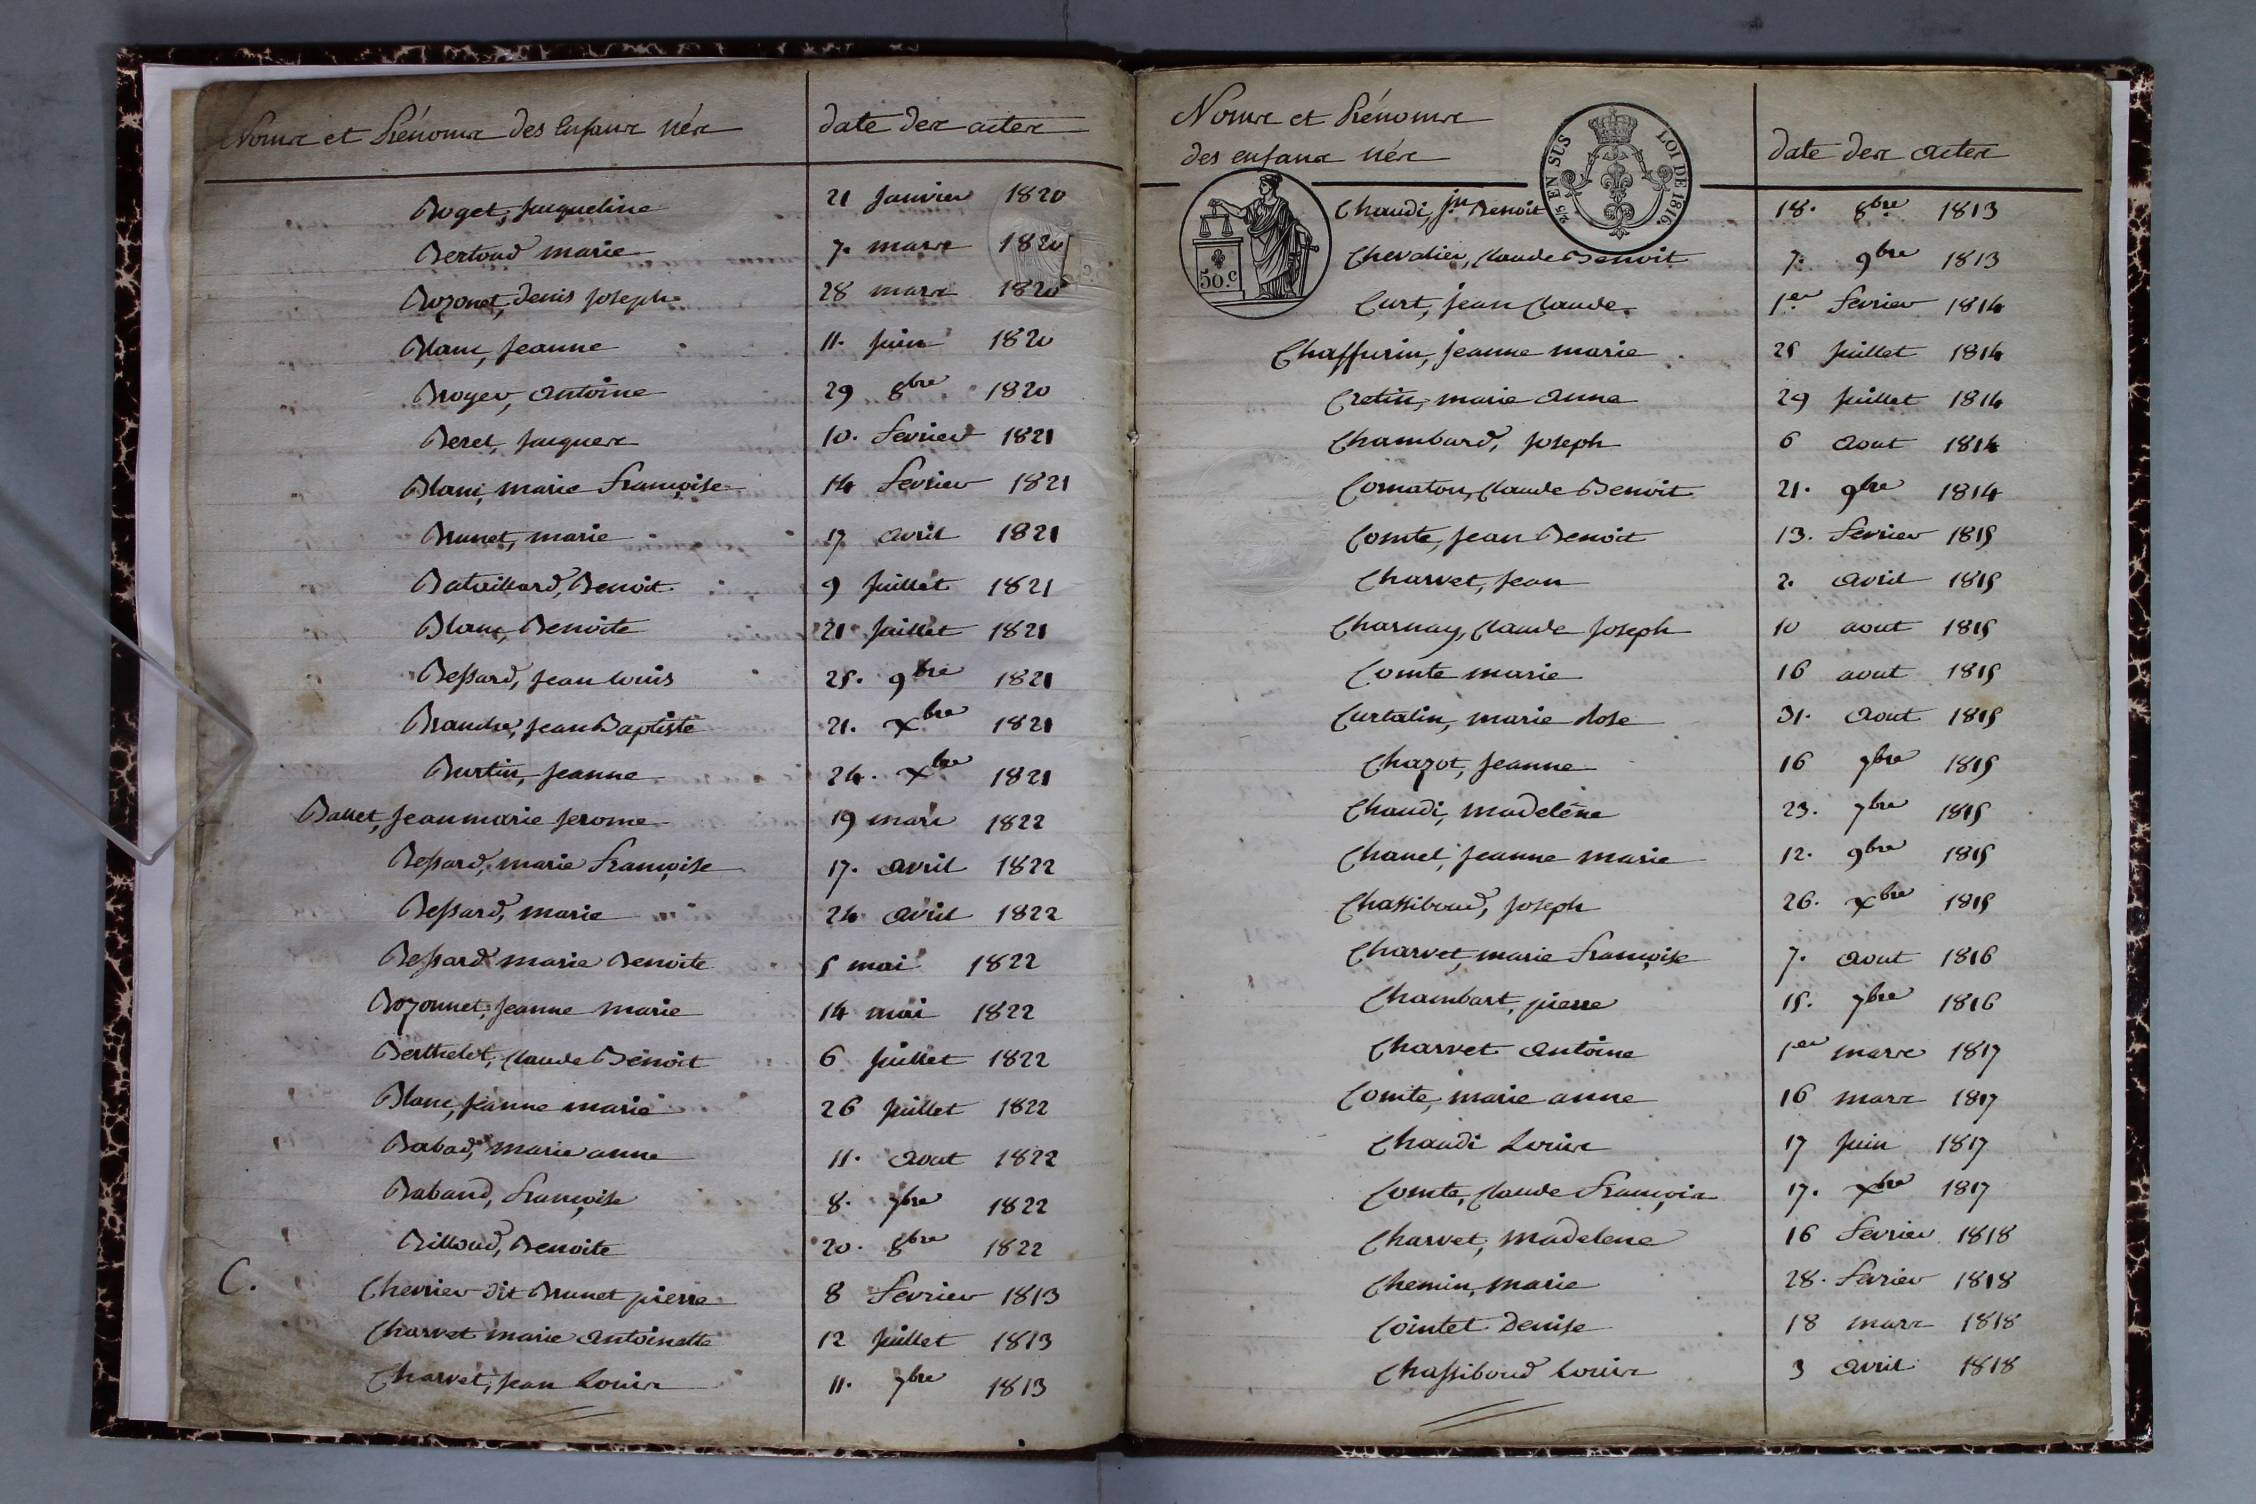 Noms et Prénoms des Enfans nés date des actes
Boget, Jacqueline 21 Janvier 1820
Bertoud marie 7. mars 1820
Bozonet, denis Joseph 28 mars 1820
Blanc, Jeanne 11. Juin 1820
Broyer, antoine 29 8bre 1820
Berel, Jacques 10. fevrier 1821
Blanc, marie françoise 14 fevrier 1821
Brunet, marie 17 avril 1821
Bataillard, Benoit 9 Juillet 1821
Blanc, Benoite 21 Juillet 1821
Bessard, Jean louis 25. 9bre 1821
Branche, Jean Baptiste 21. Xbre 1821
Burtin, Jeanne 24. Xbre 1821
Ballet, Jean marie Jerome 19 mars 1822
Bessard, marie françoise 17. avril 1822
Bessard, marie 24 avril 1822
Bessard marie Benoite 5 mai 1822
Bozonnet, Jeanne marie 14 mai 1822
Berthelet, claude Benoit 6 Juillet 1822
Blanc, Jeanne marie 26 Juillet 1822
Babad, marie anne 11. aout 1822
Baband, françoise 8. 7bre 1822
Billoud, Benoite 20. 8bre 1822
C. Chevrier dit Brunet pierre 8 fevrier 1813
Charvet marie antoinette 12 Juillet 1813
Charvet, Jean Louis 11. 7bre 1813
Noms et Prénoms
des enfans nés date des actes
2/5 EN SUS LOI DE 1816.
50.c
Chaudi, jn Benoit 18. 8bre 1813
Chevalier, claude Benoit 7. 9bre 1813
Curt, jean claude 1er fevrier 1814
Chaffurin, jeanne marie 25 Juillet 1814
Cretin, marie anne 29 Juillet 1814
Chambard, Joseph 6 aout 1814
Comaton, claude Benoit 21. 9bre 1814
Comte, Jean Benoit 13. fevrier 1815
Charvet, Jean 2. avril 1815
Charnay, claude Joseph 10 aout 1815
Comte marie 16 aout 1815
Curtalin, marie Rose 31. aout 1815
Chazot, Jeanne 16 7bre 1815
Chaudi, madelène 23. 7bre 1815
Chanel, Jeanne marie 12. 9bre 1815
Chassiboud, Joseph 26. Xbre 1815
Charvet, marie françoise 7. aout 1816
Chambart, pierre 15. 7bre 1816
Charvet antoine 1er mars 1817
Comte, marie anne 16 mars 1817
Chaudi Louis 17 Juin 1817
Comte, claude François 17. Xbre 1817
Charvet, madelene 16 fevrier 1818
Chemin, marie 28. fevrier 1818
Cointet Denise 18 mars 1818
Chassiboud Louis 3 avril 1818